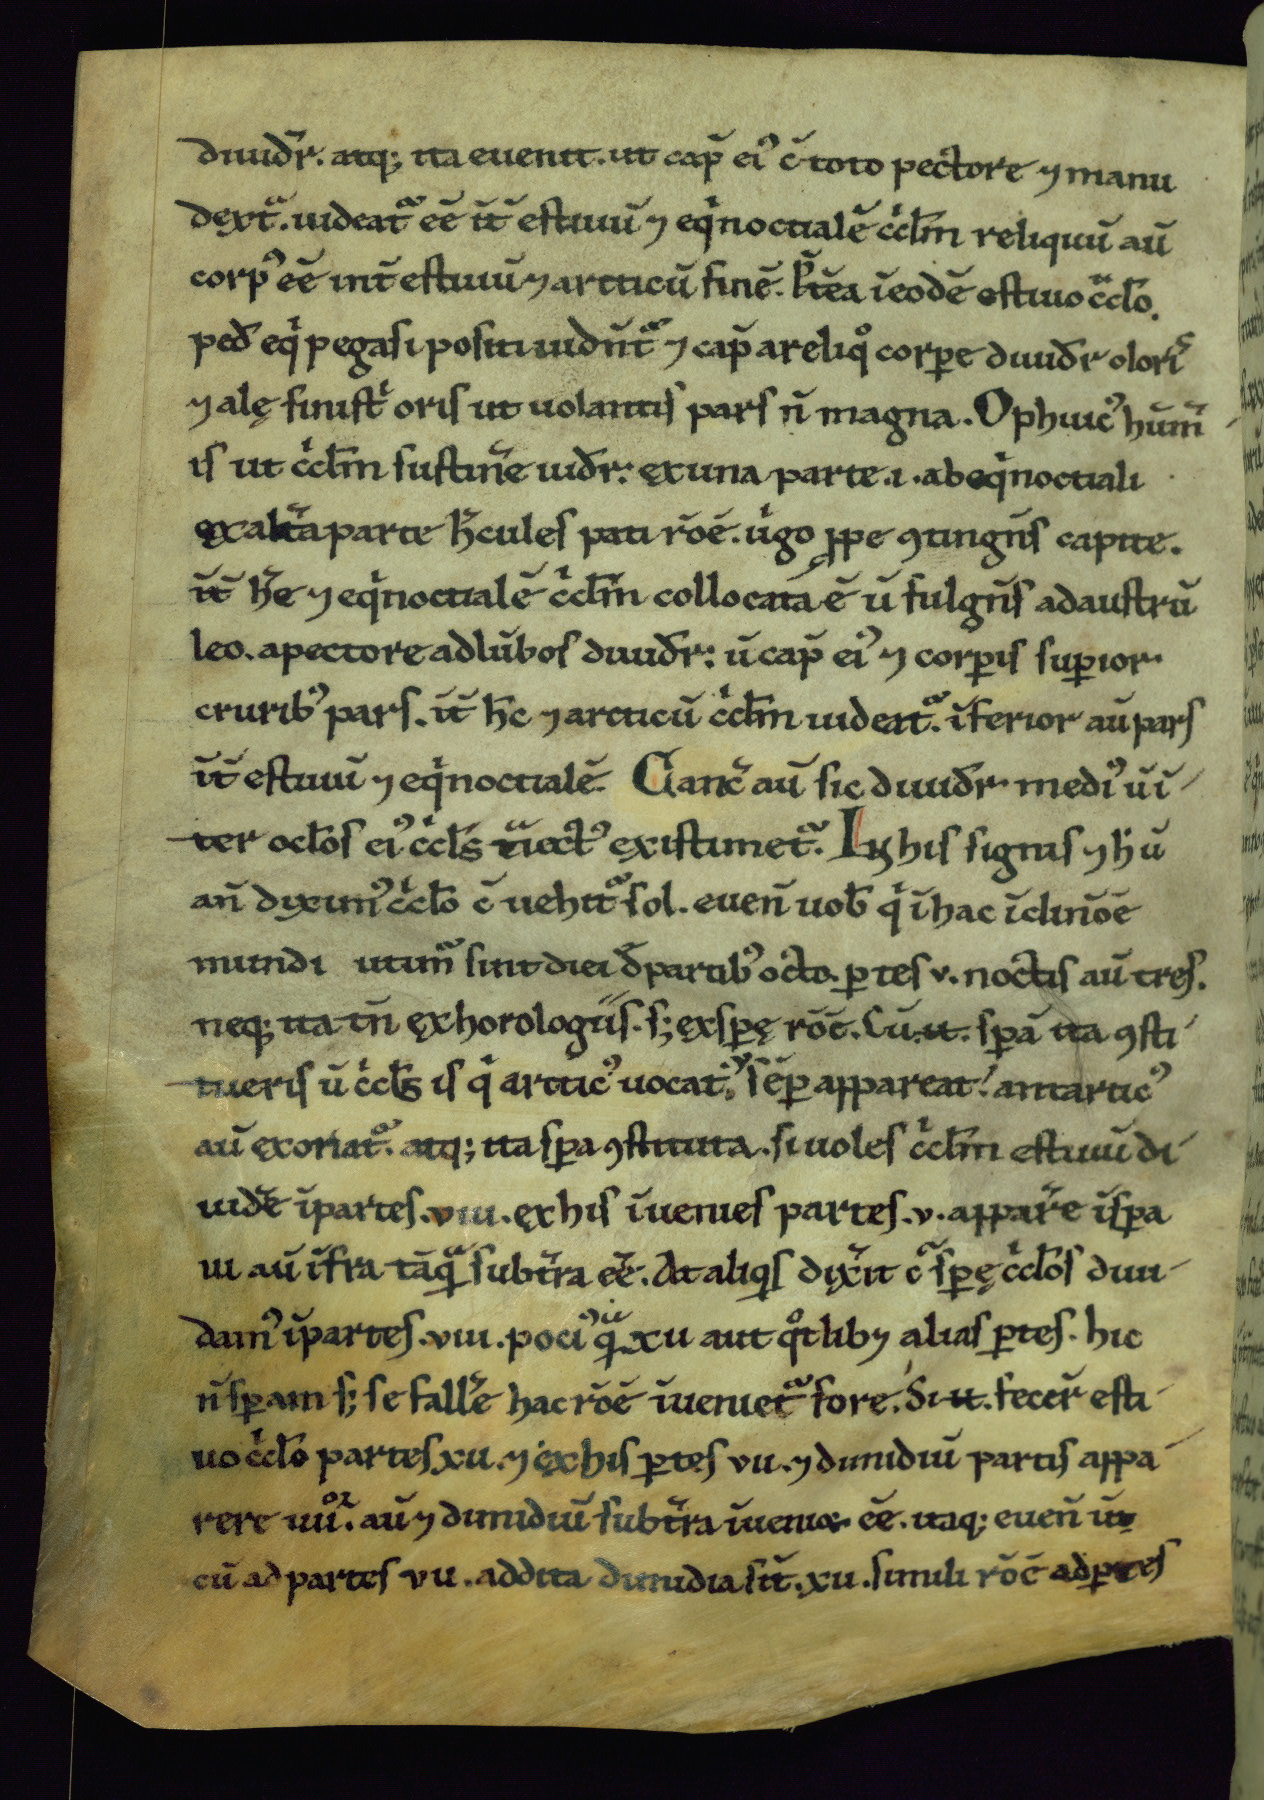 diuidr̄. atq; ita euenit. ut cap̄ ei⁹ c̄ toto pectore ⁊ manu
dext̃. uideat᷑ eē īt̄ estiuū ⁊ eqⁱnoctialē cⁱclm̄ reliquū aū
corp⁹ eē int̄ estiuū ⁊ articū finē. p̃tēa ī eodē estiuo cⁱclo.
ped̄ eqⁱ pegasi positi uidn̄t᷑ ⁊ cap̄ a reliqͦ corꝑe diuidr̄ olorⁱˢ
⁊ alę sinistⁱoris ut uolantis pars n̄ magna. Ophuic⁹ hūm̄
is ut cⁱclm̄ sustin̄e uidr̄. ex una parte .i. ab eqⁱnoctiali
ex alt̄a parte h̄cules pati rōē. uⁱgo ꝓpe ꝯtingn̄s capite.
īt̄ h̄e ⁊ eqⁱnoctialē cⁱclm̄ collocata ē ū fulgn̄s ad austrū
leo. a pectore ad lūbos diuidr̄. ū cap̄ ei⁹ ⁊ corꝑis suꝑior
cruribꝰ pars. īt̄ h̄c ⁊ arcticū cⁱclm̄ uideat᷑. īferior aū pars
īt̄ estiuū ⁊ eqⁱnoctialē. Canc̄ aū sic diuidr̄ medi⁹ ū ī
ter oclōs ei⁹ cⁱcls̄ existimet᷑. In his signis ⁊ h̄ ū
an̄ dixim⁹ cⁱclo c̄ uehit᷑ sol. euen̄ uob̄ qⁱ ī hac īclinōē
mundi utim᷑ sint diei d̄ partibꝰ octo. ꝑtes v. noctis aū tres.
neq; ita tn̄ ex horologiis. s; ex spę rōē. Cū .u. spā ita ꝯsti
tueris ū cⁱcls̄ is qⁱ artic⁹ uocat᷑ sēꝑ appareat. antartic⁹
aū exoriat᷑. atq; ita spa ꝯstituta. si uoles cⁱclm̄ estiuū di
uidē ī partes .viii. ex his īuenies partes .v. appar̄e ī spa
iii aū īfra tāqᷓ sub t̄ra eē. At aliqⁱs dix̄it cᷓ spę cⁱclos diui
dam⁹ ī partes .viii. poci⁹ qᷓ xu aut qͦtlib; alias ꝑtes. hic
n̄ spam s; se fall̄e hac rōē īueniet᷑ fore. Si .u. fecer̄ esti
uo cⁱclo partes xu. ⁊ ex his ꝑtes vii. ⁊ dimidiū partis appa
rere uii. aū ⁊ dimidiū sub t̄ra īueniēt eē. itaq; euen̄
cū ad partes vii. addita dimidia sit̄. xu. simili rōē ad ꝑtes